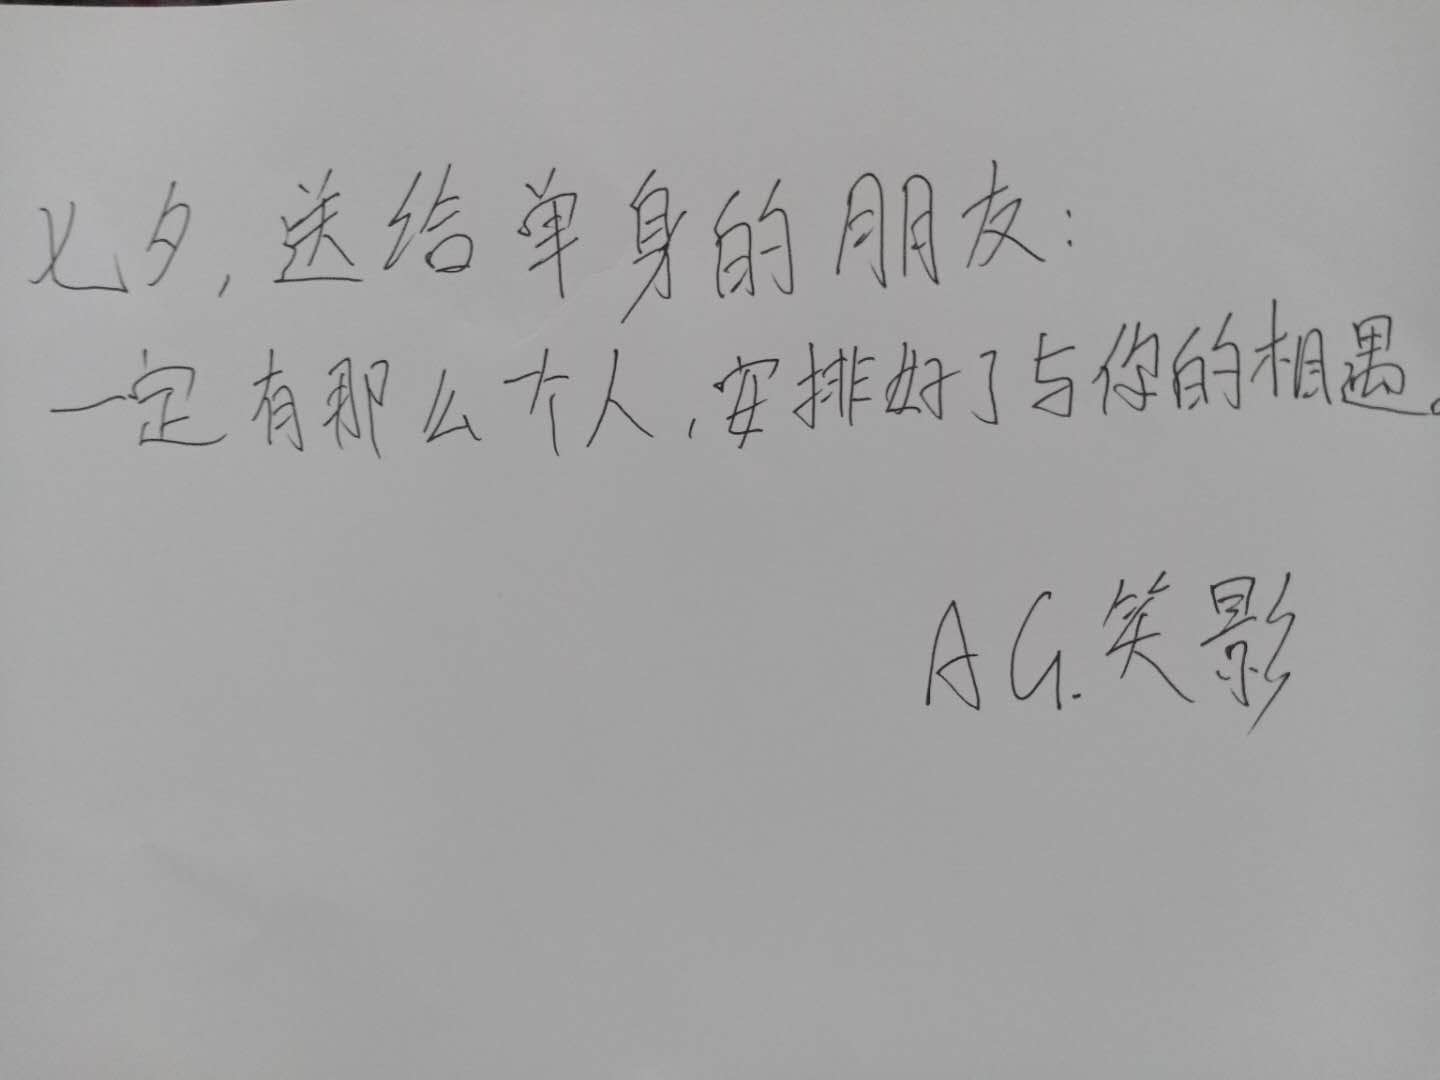 七夕,送给单身的朋友:
一定有那么个人,安排好了与你的相遇。
AG.笑影